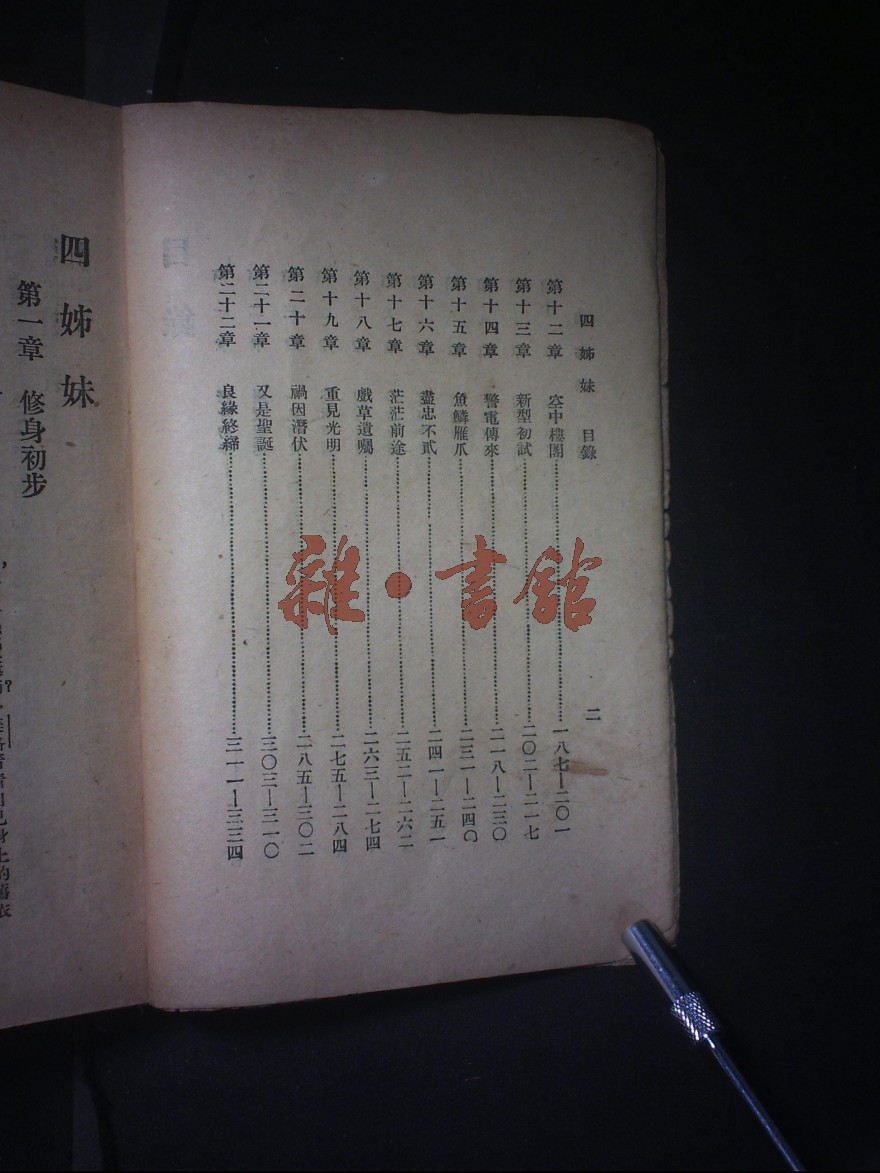 四姊妹 目錄
二
第十二章 空中樓閣 一八七—二〇一
第十三章 新型初試 二〇二—二一七
第十四章 警電傳來 二一八—二三〇
第十五章 魚鱗雁爪 二三一—二四〇
第十六章 盡忠不貳 二四一—二五一
第十七章 茫茫前途 二五二—二六二
第十八章 戲草遺囑 二六三—二七四
第十九章 重見光明 二七五—二八四
第二十章 禍因潛伏 二八五—三〇二
第二十一章 又是聖誕 三〇三—三一〇
第二十二章 良緣終締 三一一—三三四
雜·書館
四姊妹
第一章 修身初步
自己身上的舊衣